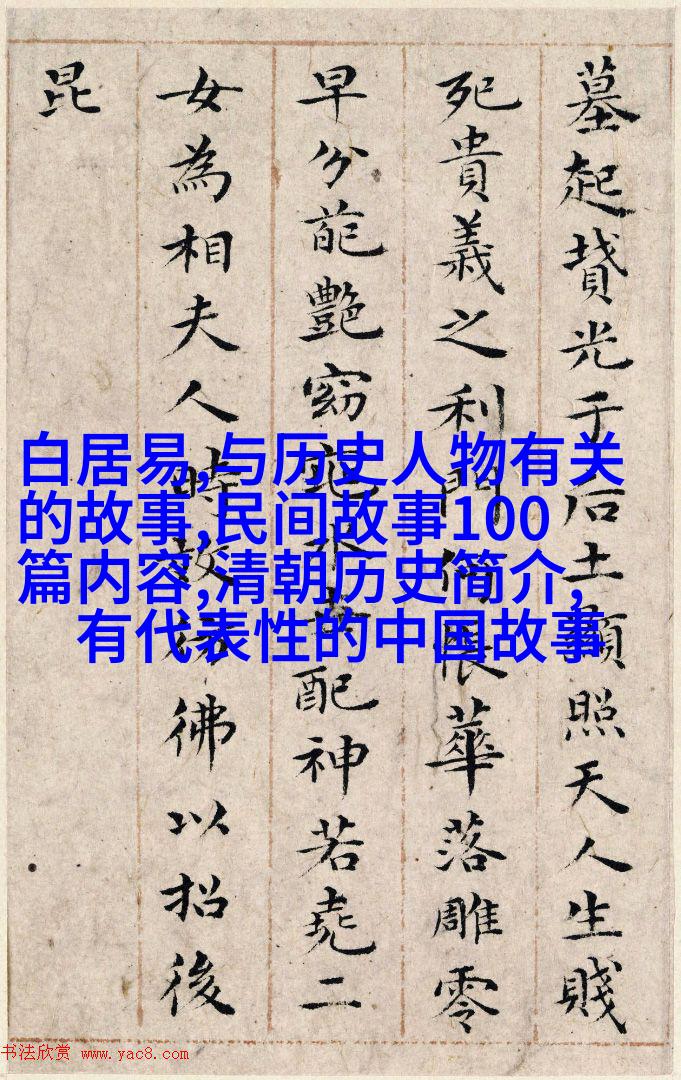 墓起墳光于后土顯照天人生賤
死貴義之利門何悵華落雕零
早分葩艷窈窕永世配神若堯二
女為相夫人時效彷彿以招後
昆
白居易,与历史人物有关
的故事,民间故事100
篇内容,清朝历史简介,
有代表性的中国故事
书法欣赏 www.yac8.com